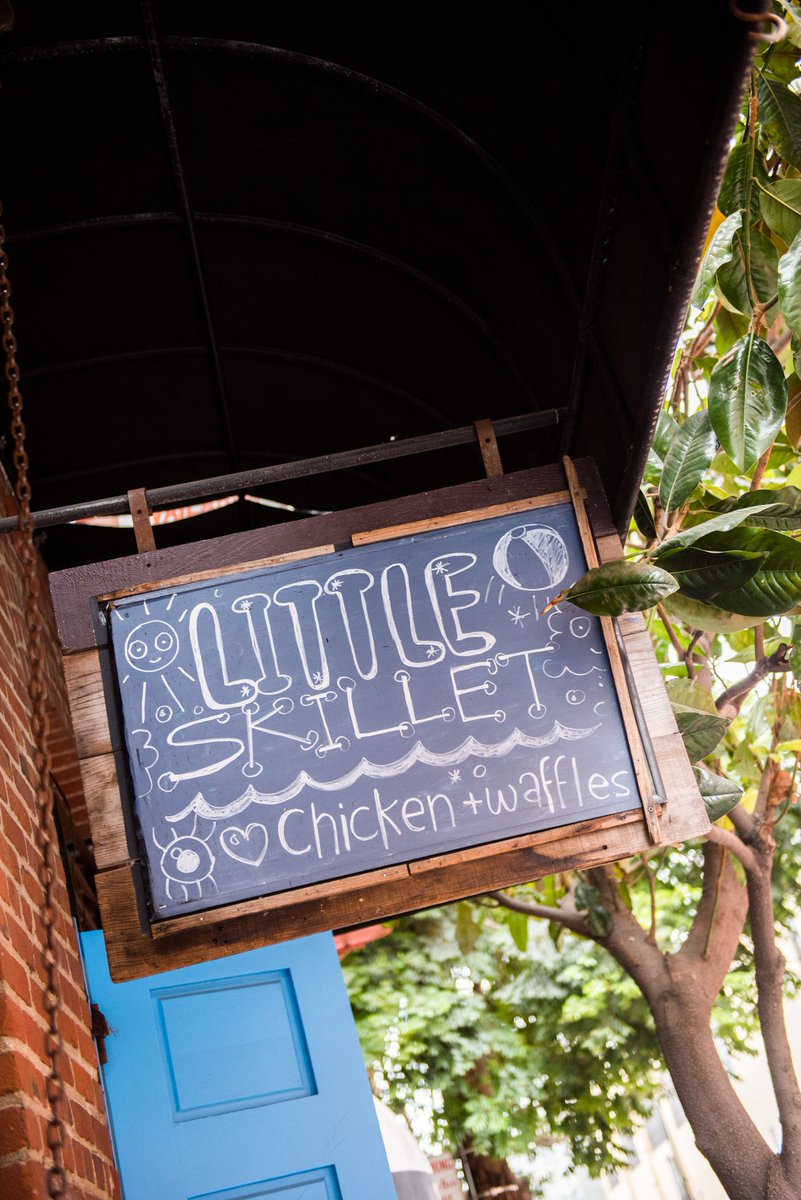 LITTLE
SKILLET
Chicken + waffles